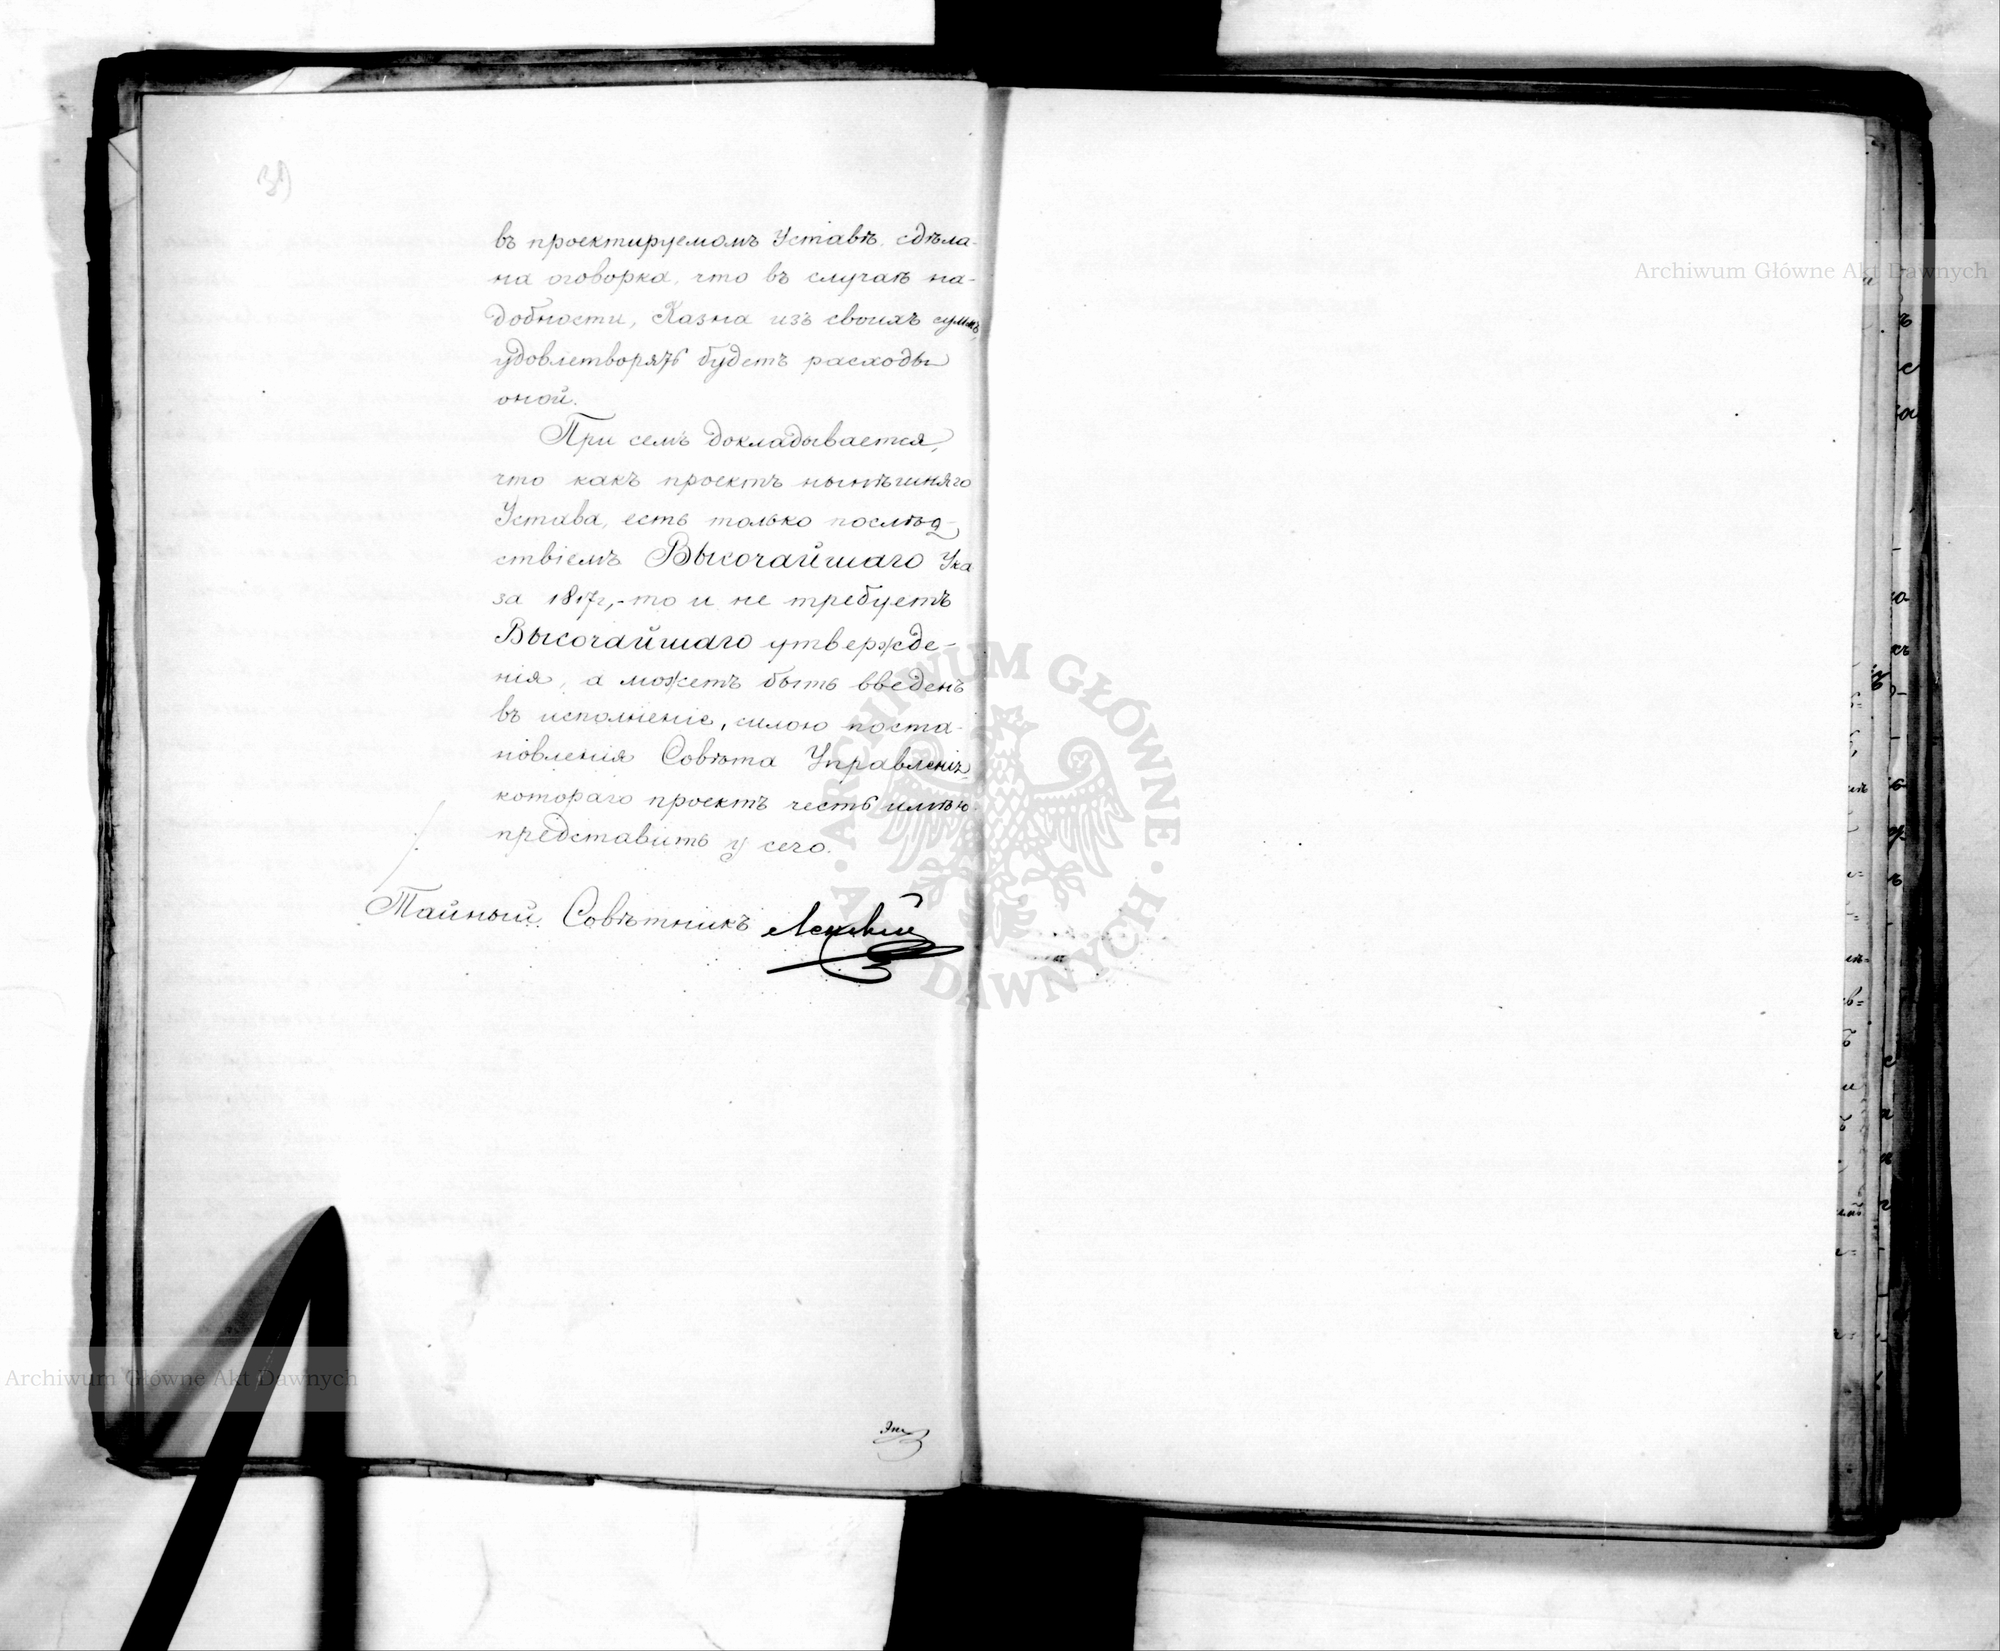 въ проектируемомъ Уставѣ, сдѣла-
на оговорка, что въ случаѣ на-
добности, Казна изъ своихъ суммъ
удовлетворять будетъ расходы
оной.
При семъ докладывается,
что какъ проектъ нынѣшняго
Устава, есть только послѣд-
ствіемъ Высочайшаго Ука
за 1817г,-то и не требуетъ
Высочайшаго утвержде-
нія, а можетъ быть введенъ
въ исполненіе, силою поста-
новленія Совѣта Управленія
котораго проектъ честь имѣю
представить у сего.
Тайный Совѣтникъ
Archiwum Główne Akt Dawnych
Archiwum Główne Akt Dawnych
ARCHIWUM GŁÓWNE AKT DAWNYCH